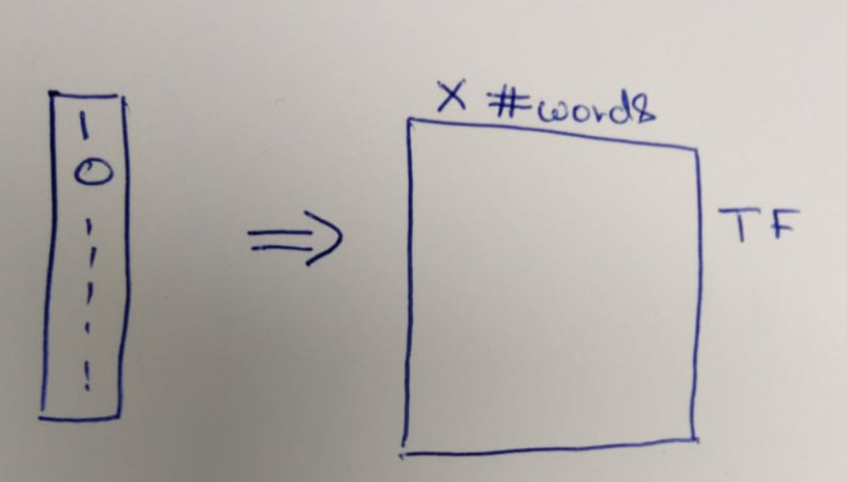 1
0
X #words
TF